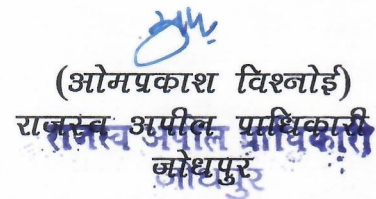 (ओमप्रकाश विश्नोई)
राजस्व अपील प्राधिकारी
राजस्व अपील प्राधिकारी
जोधपुर
जोधपुर